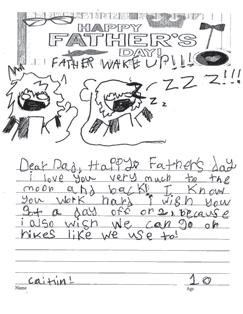 HAPPY
FATHER'S
DAY!
FATHER WAKE UP!!!
ZZZ!!!
Dear Dad, Happy Father's day
i love you very much to the
moon and back! I know
you work hard i wish you
got a day off or 2, because
i also wish we can go on
hikes like we use to!
caitlin!
10
Name
Age